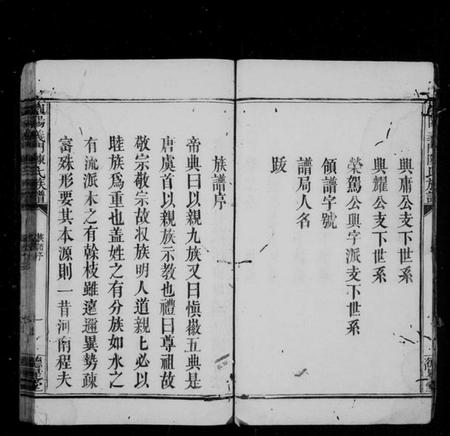 興庸公支下世系
興耀公支下世系
榮駕公興字派支下世系
領譜字號
譜局人名
跋
族譜序
帝典曰以親九族又曰慎徽五典是
唐虞首以親族示教也禮曰尊祖故
敬宗敬宗故収族明人道親上必以
睦族為重也盖姓之有分族如水之
有流派木之有榦枝雖遠邇異勢疎
宻殊形要其本源則一昔河南程夫
義門陳氏族譜
族譜序